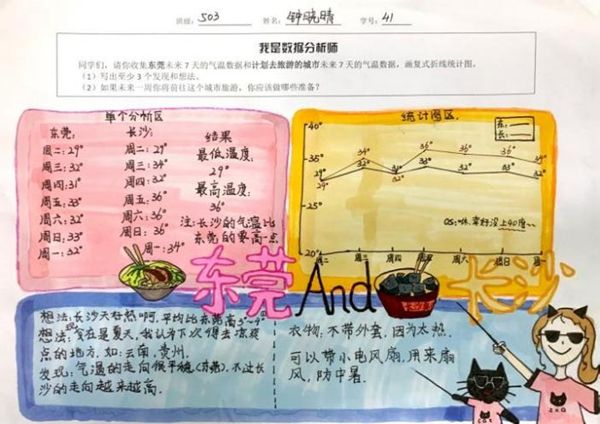 班级:503 姓名:钟晓晴 学号:41
我是数据分析师
同学们，请你收集东莞未来7天的气温数据和计划去旅游的城市未来7天的气温数据，画复式折线统计图。
（1）写出至少3个发现和想法。
（2）如果未来一周你将前往这个城市旅游，你应该做哪些准备？
单个分析区
东莞:
周二:29°
周三:32°
周四:31°
周五:33°
周六:32°
周日:33°
周一:32°
长沙:
周二:29°
周三:34°
周四:32°
周五:36°
周六:36°
周日:36°
周一:34°
结果
最低温度:
29°
最高温度:
36°
注:长沙的气温比
东莞的要高一点
统计图区
东:
长:
40°
35°
25°
20°
29°
34°
32°
36°
36°
36°
34°
周二 周三 周四 周五 周六 周日 周一
OS:咻,幸好没上40度~~
东莞And长沙
想法:长沙天好热啊,平均比东莞高3~4°
想法:现在是夏天,我认为下次得去凉爽
点的地方,如:云南,贵州.
发现:气温的走向很平稳(东莞),不过长
沙的走向越来越高.
衣物:不带外套,因为太热.
可以带小电风扇,用来扇
风,防中暑.